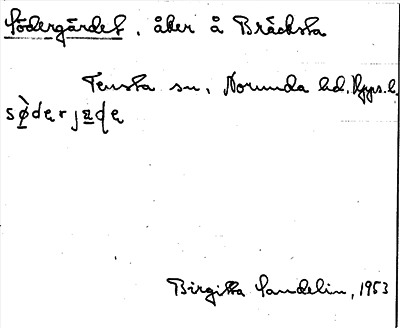 Södergärdet, åker å Bräcksta
Tensta sn, Norunda hd, Upps. l.
sø̀dęrjæ̣dę
Birgitta Sandelin, 1953